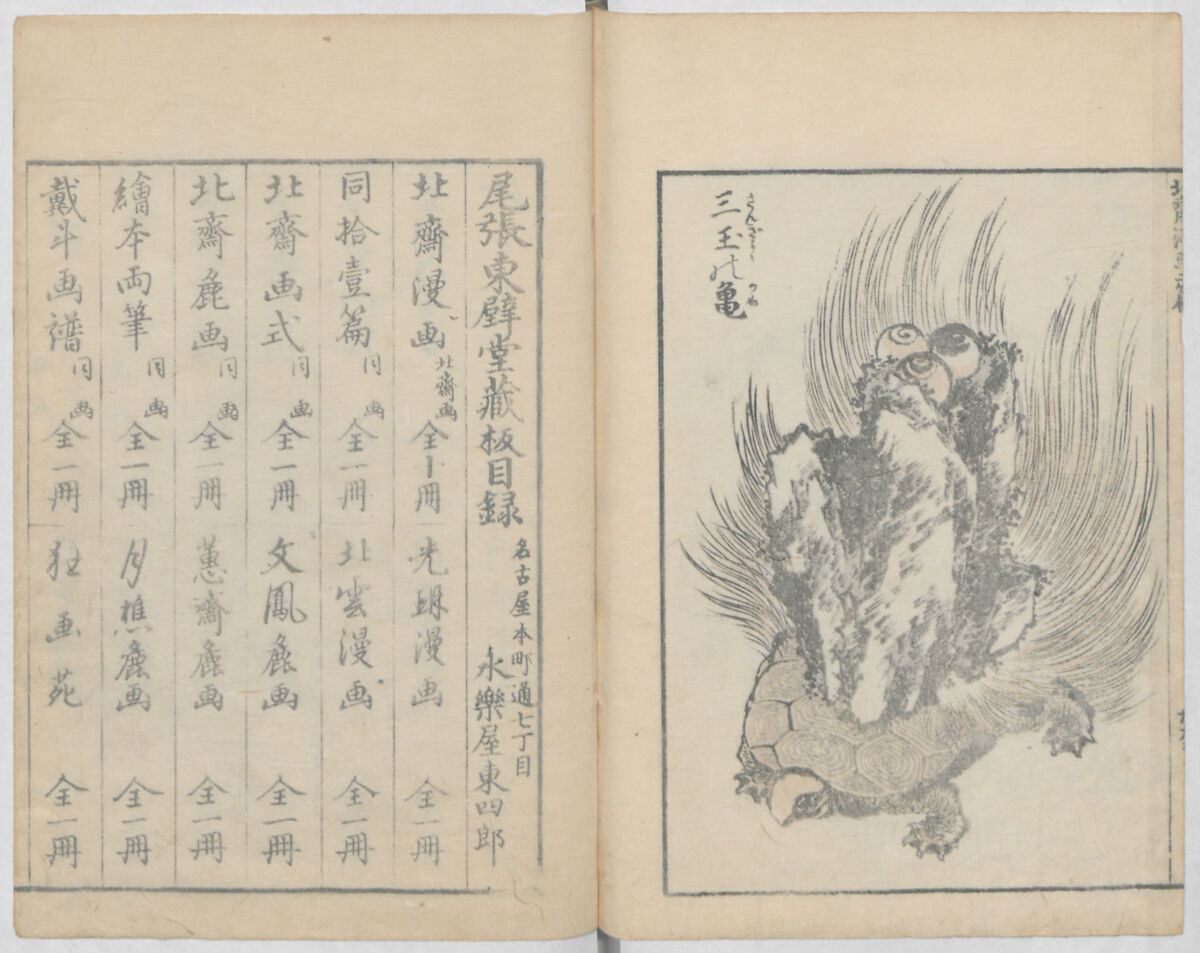 三玉の亀
さんぎよくのかめ
尾張東壁堂藏板目録
名古屋本町通七丁目
永樂屋東四郎
北齋漫画 北齋画 全十冊
光琳漫画 全一冊
同拾壹篇 同画 全一冊
北雲漫画 全一冊
北齋画式 同画 全一冊
文鳳麁画 全一冊
北齋麁画 同画 全一冊
蕙齋麁画 全一冊
繪本両筆 同画 全一冊
月樵麁画 全一冊
戴斗画譜 同画 全一冊
狂画苑 全一冊